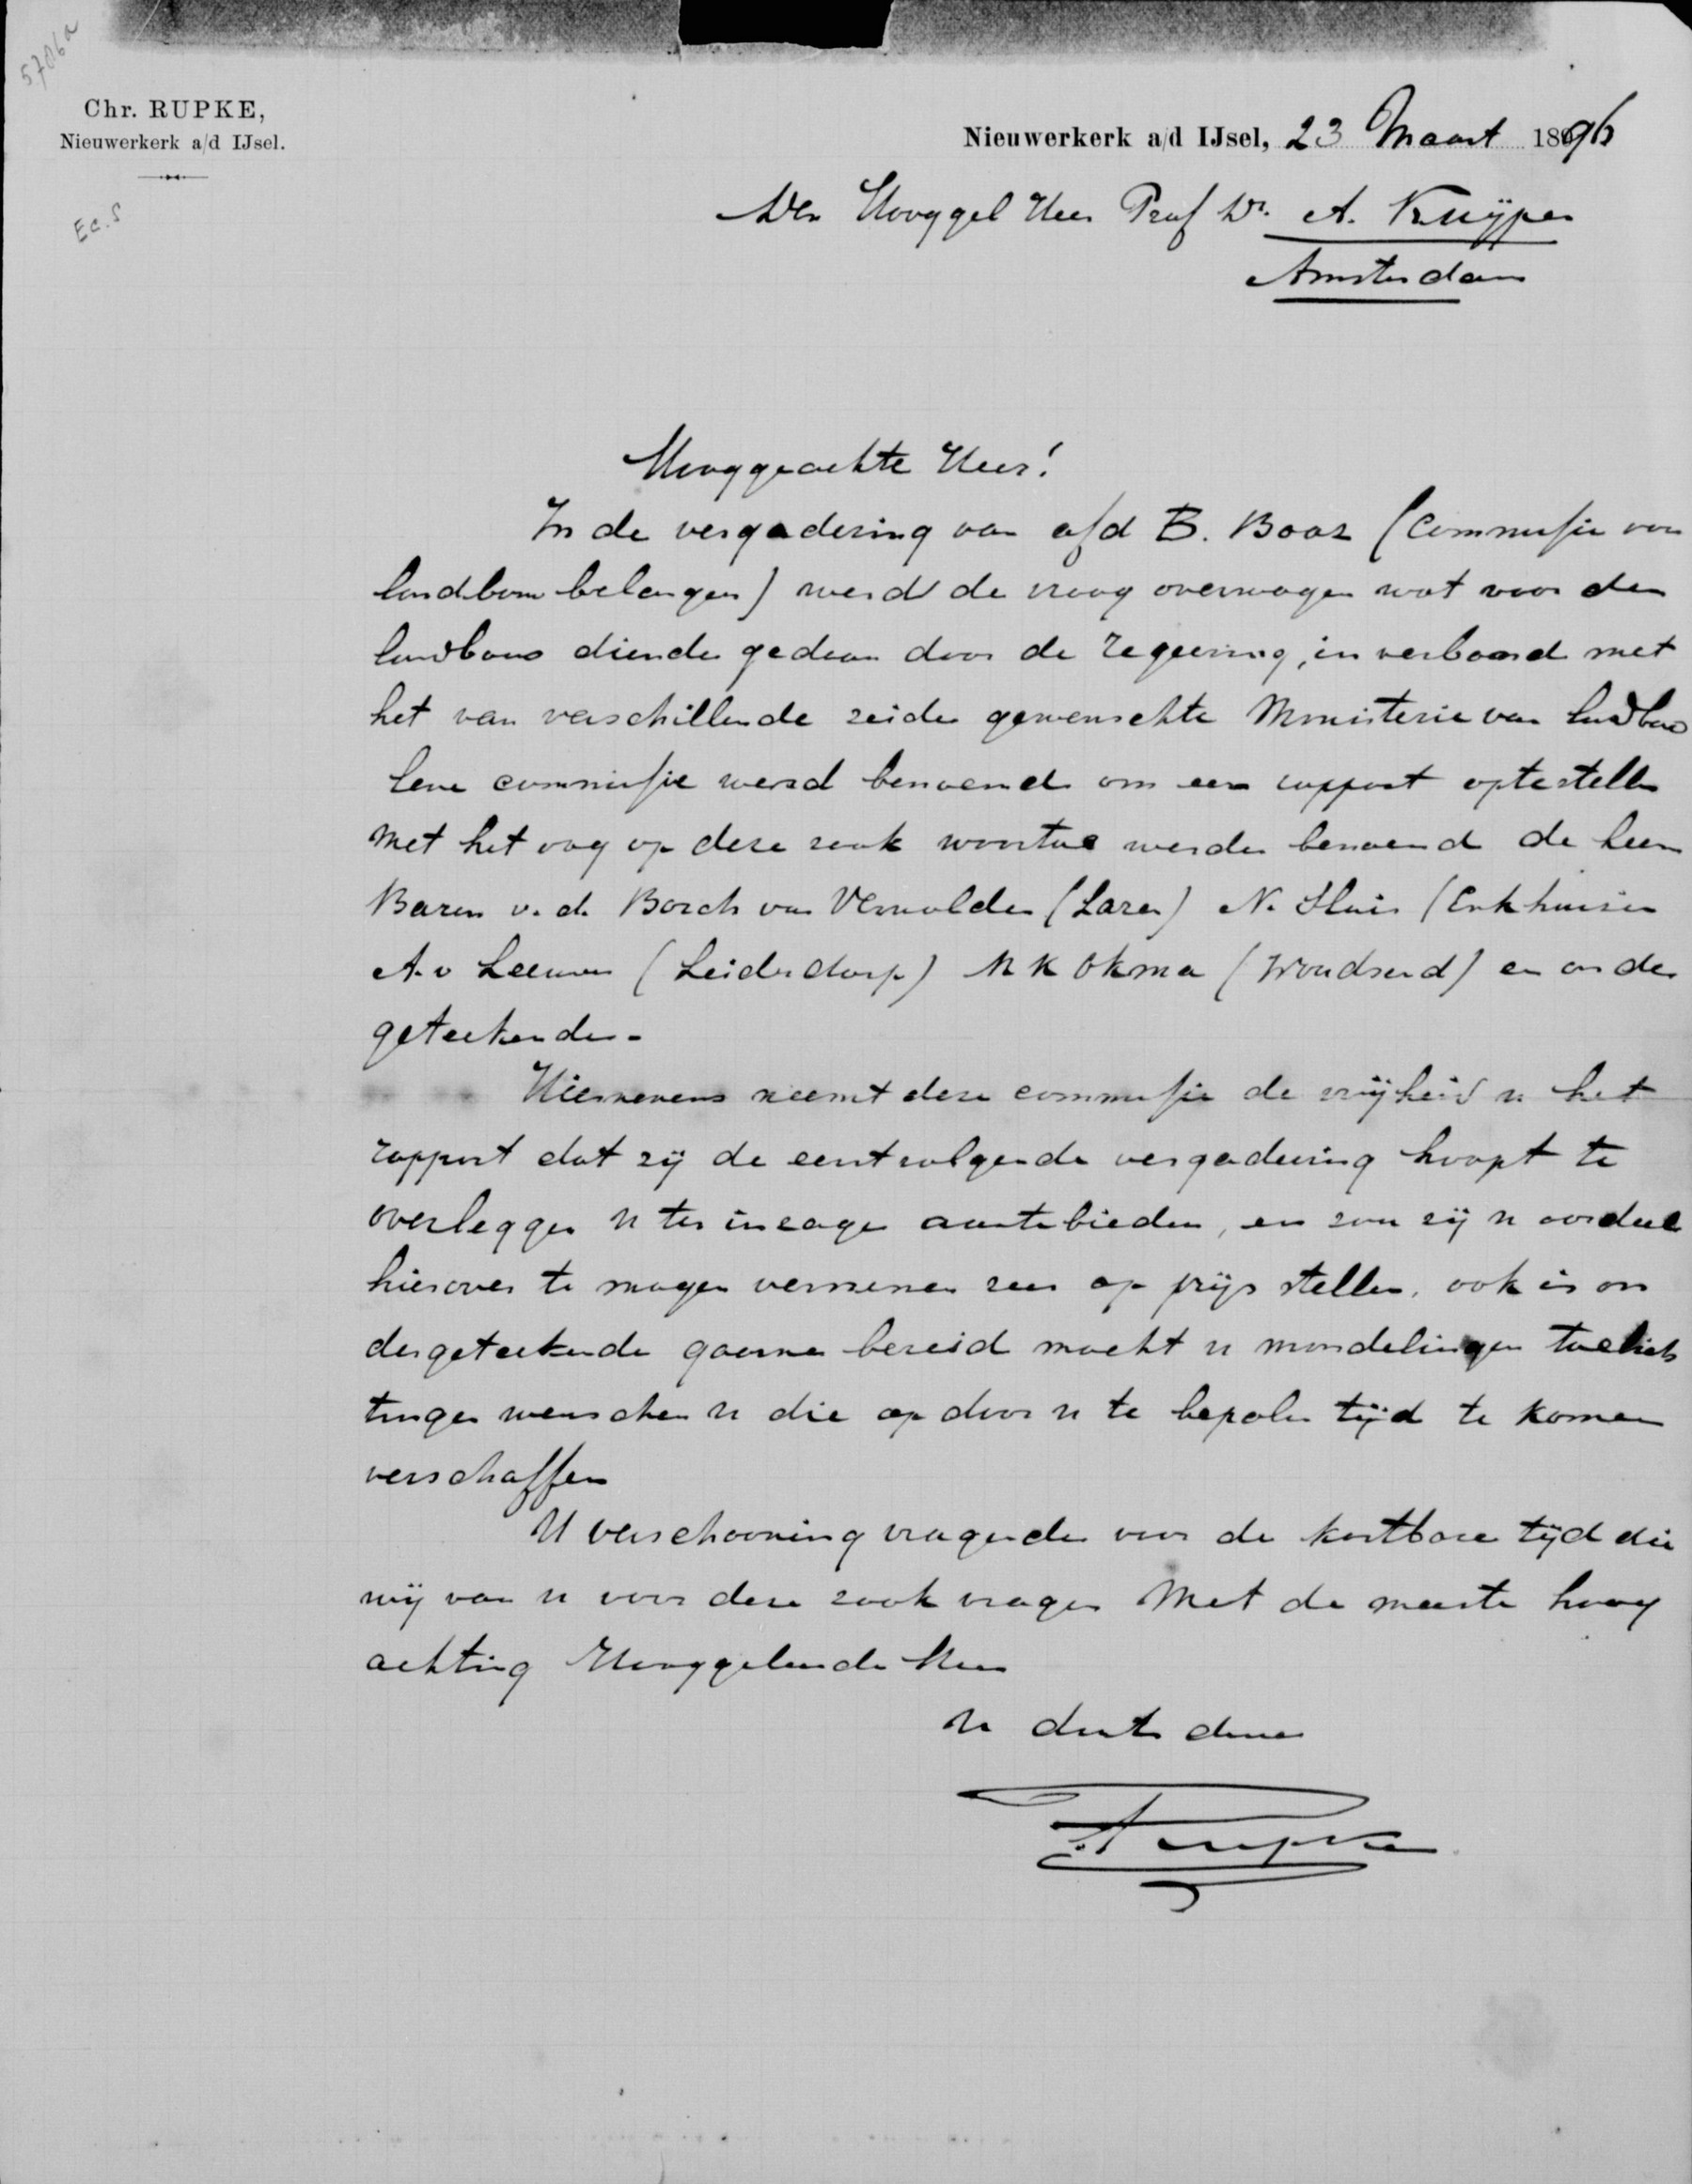 5706a
Chr. RUPKE,
Nieuwerkerk a/d IJsel.
Ec. S
Nieuwerkerk a/d IJsel, 23 Maart 1896
Den Hooggel Heer Prof Dr. A. Kuÿper
Amsterdam
Hooggeachte Heer!
In de vergadering van afd B. Boaz (Commissie voor
landbouw belangen) werd de vraag overwogen wat voor den
landbouw diende gedaan door de regeering, in verband met
het van verschillende zeiden gewenschte Ministerie van landbouw
Eene commissie werd benoemd om een rapport optestellen
Met het oog op deze zaak waartoe werden benoemd de heeren
Baron v. d. Borch van Verwolde (Laren) N. Sluis (Enkhuizen
A. v Leeuwen (Leiderdorp) M K Okma (Woudsend) en onder
geteekende.
Hiernevens neemt deze commissie de vrÿheid u het
rapport dat zÿ de eerstvolgende vergadering hoopt te
overleggen u ter inzage aantebieden, en zou zÿ u oordeel
hierover te mogen vernemen zeer op prÿs stellen, ook is on
dergeteekende gaarne bereid mocht u mondelingen toelich
tingen wenschen u die op door u te bepalen tÿd te komen
verschaffen
U verschooning vragende voor de kostbare tÿd die
wÿ van u voor deze zaak vragen Met de meeste hoog
achting Hooggeleerde Heer
u dienstv dienaar
Rupke